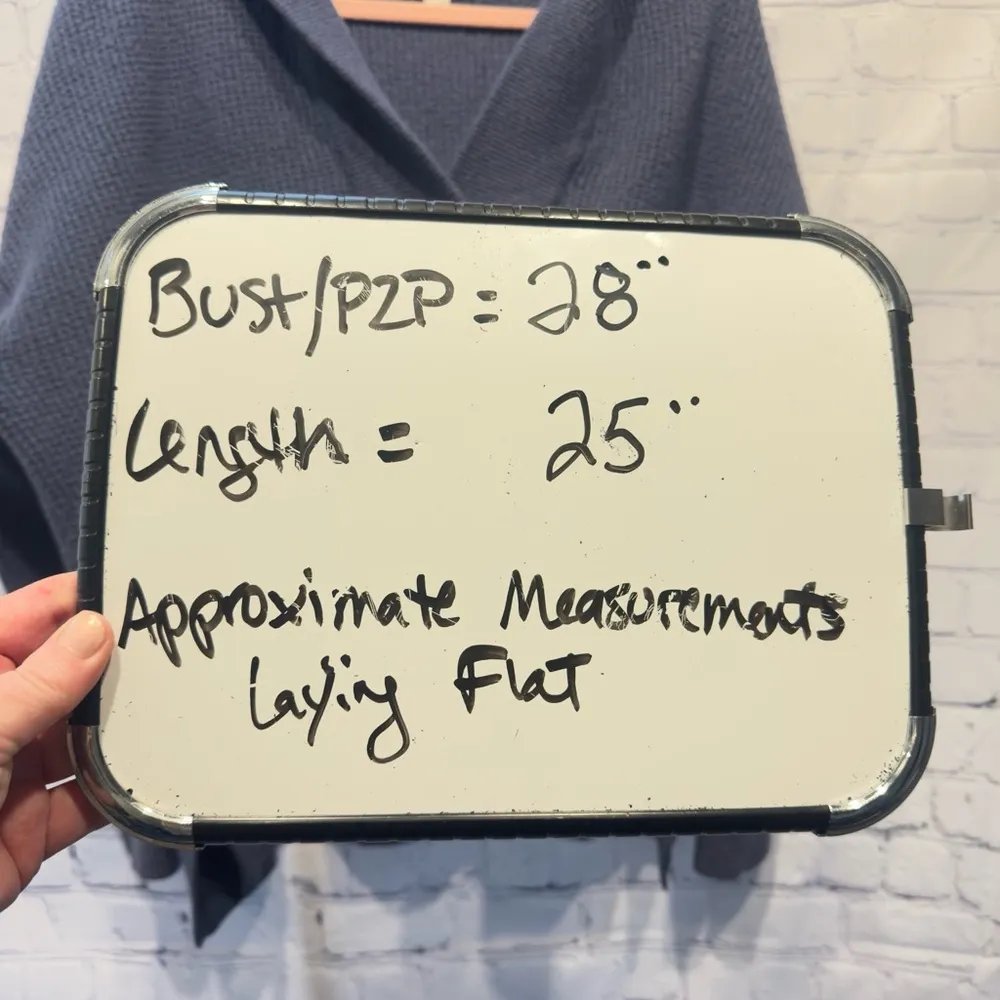 Bust/P2P = 28"
Length = 25"
Approximate Measurements
Laying Flat